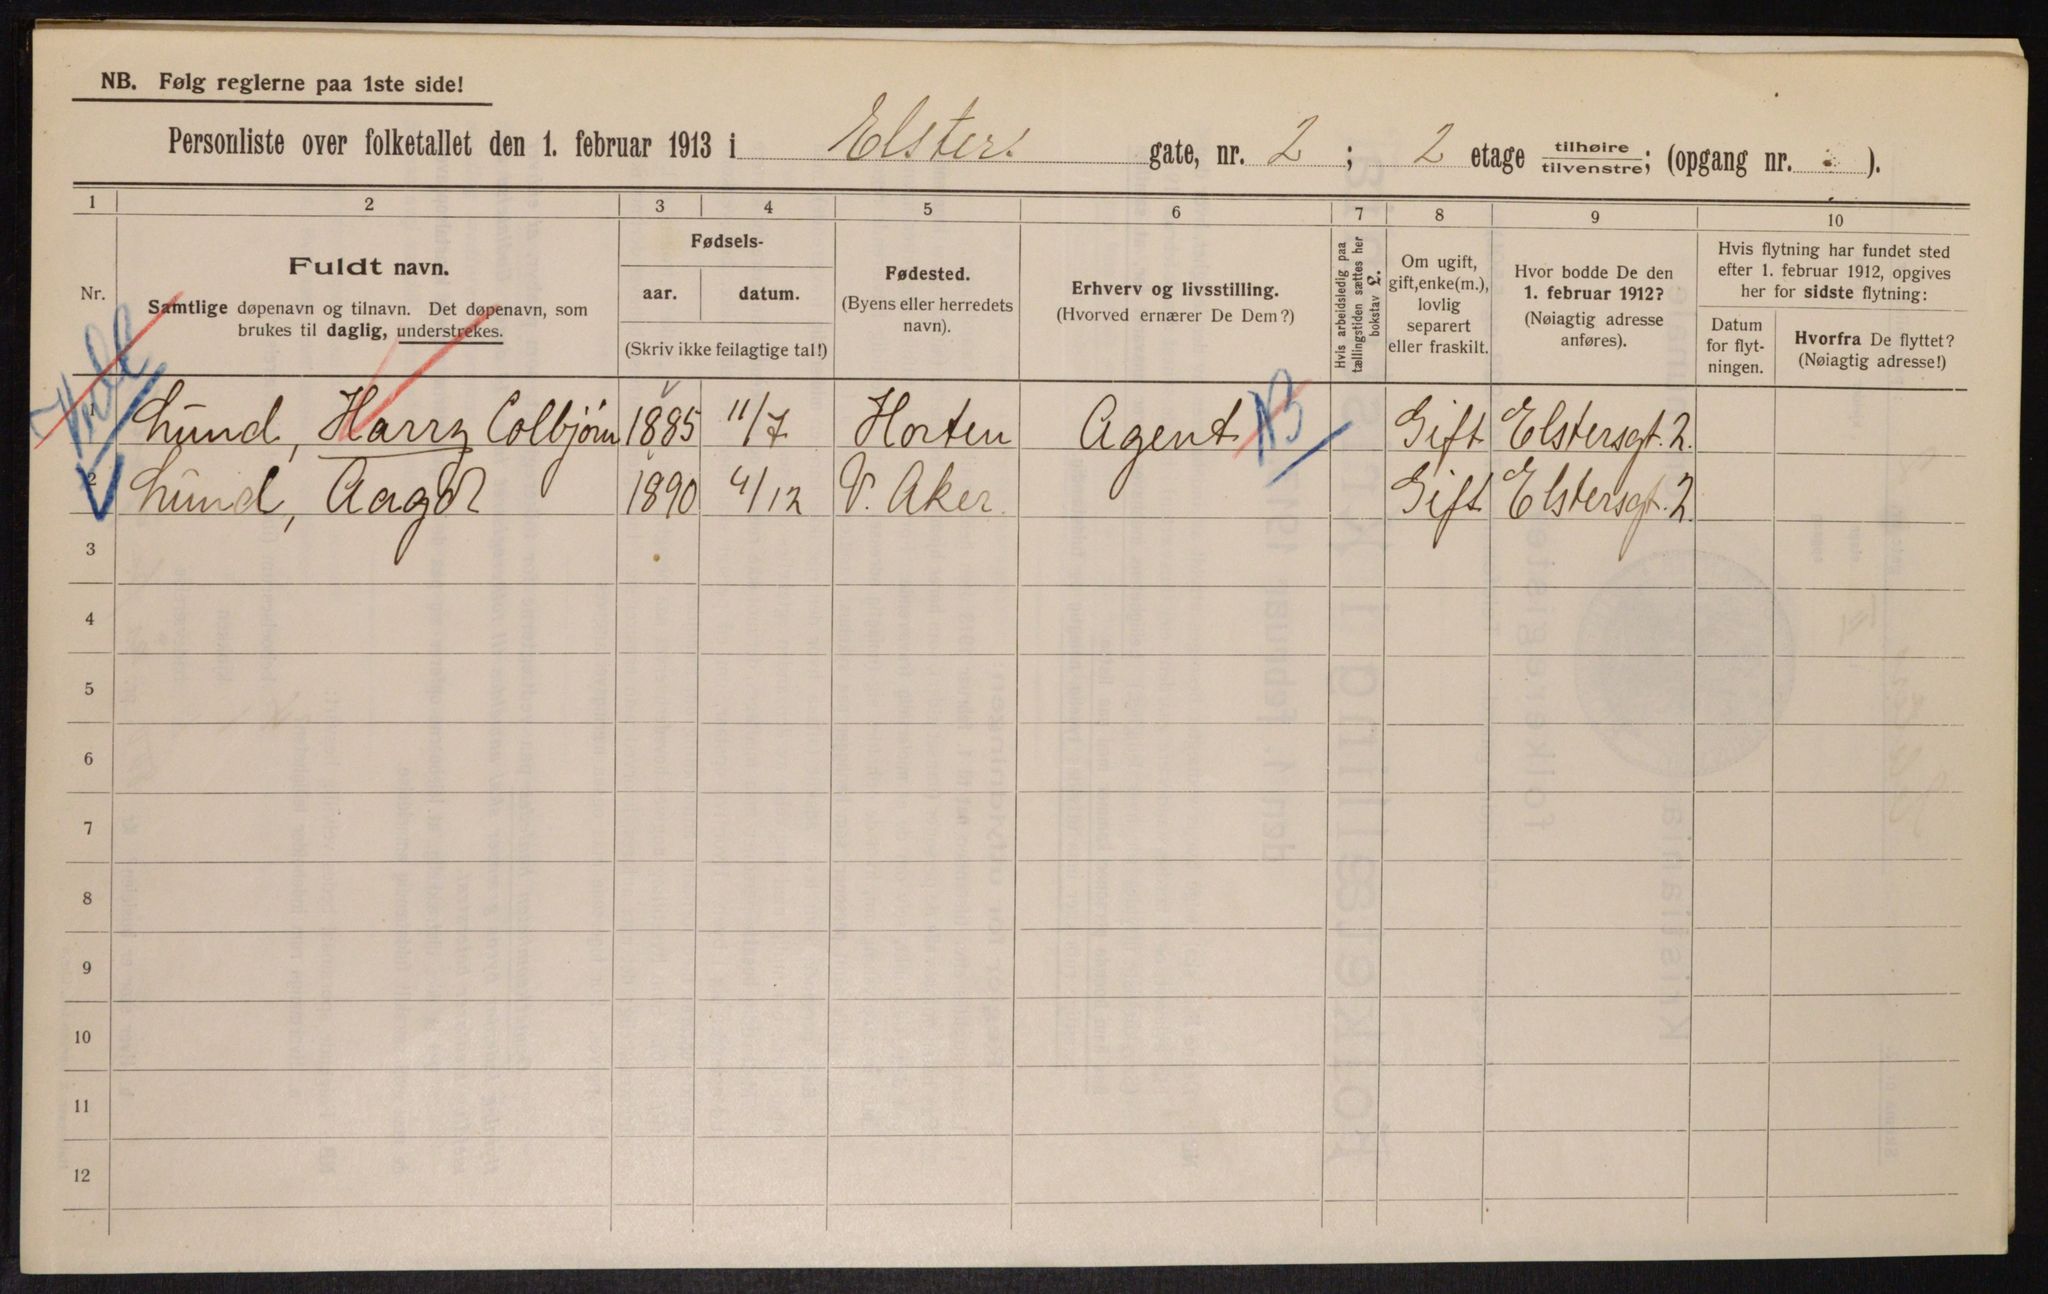 NB. Følg reglerne paa 1ste side!
Personliste over folketallet den 1. februar 1913 i Elsters gate, nr. 2 ; 2 etage tilhøire tilvenstre; (opgang nr. ).
1 2 3 4 5 6 7 8 9 10
Nr.
Fuldt navn.
Samtlige døpenavn og tilnavn. Det døpenavn, som
brukes til daglig, understrekes.
Fødsels-
aar. datum.
(Skriv ikke feilagtige tal!)
Fødested.
(Byens eller herredets
navn).
Erhverv og livsstilling.
(Hvorved ernærer De Dem?)
Hvis arbeidsledig paa
tællingstiden sættes her
bokstav L.
Om ugift,
gift, enke(m.),
lovlig
separert
eller fraskilt.
Hvor bodde De den
1. februar 1912?
(Nøiagtig adresse
anføres).
Hvis flytning har fundet sted
efter 1. februar 1912, opgives
her for sidste flytning:
Datum
for flyt-
ningen.
Hvorfra De flyttet?
(Nøiagtig adresse!)
1 Lund, Harry Colbjörn 1885 11/7 Horten Agent Gift Elstersgt. 2.
2 Lund, Aagot 1890 4/12 V. Aker. Gift Elstersgt. 2.
3
4
5
6
7
8
9
10
11
12